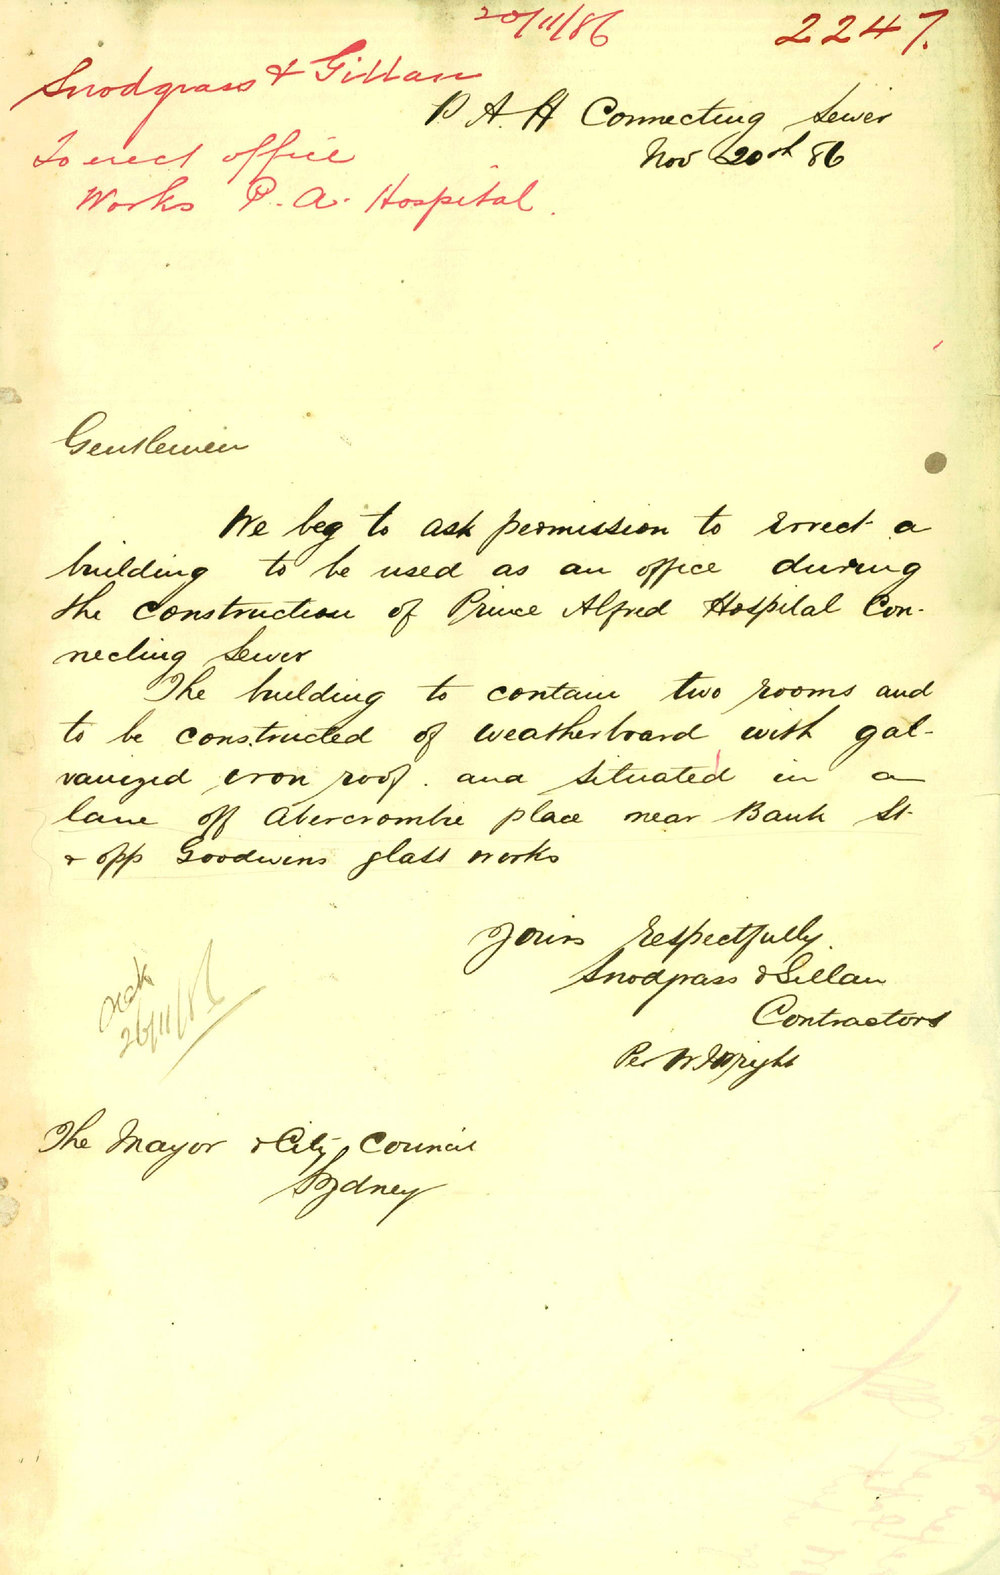 20/11/86
2247.
Snodgrass & Gillan
To erect office
Works P. A. Hospital.
P A. H Connecting Sewer
Nov 20th 86
Gentlemen
We beg to ask permission to errect a
building to be used as an office during
the construction of Prince Alfred Hospital Con-
necting Sewer
The building to contain two rooms and
to be constructed of weatherboard with gal-
vanized iron roof. and situated in a
lane off Abercrombie place near Bank St
& opp Goodwins glass works
Yours respectfully.
Snodgrass & Gillan
Contractors
Per W. Wright
26/11/86
The Mayor & City Council
Sydney